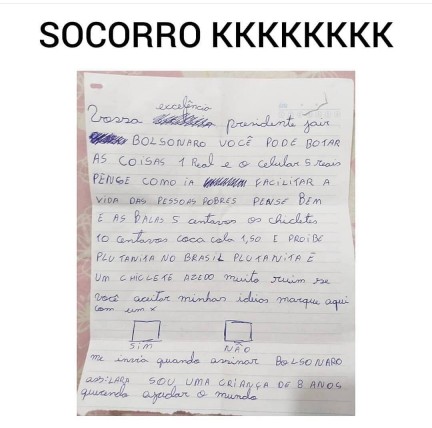 SOCORRO KKKKKKKK
excelência
Vossa presidente jair
BOLSONARO VOCÊ PODE BOTAR
AS COISAS 1 Real e o celular 5 reais
PENSE COMO IA FACILITAR A
VIDA DAS PESSOAS POBRES PENSE BEM
E AS BALAS 5 centavos os chicletes
10 centavos coca cola 1,50 E PROIBE
PLUTANITA NO BRASIL PLUTANITA É
UM CHICLETE AZEDO muito ruim se
você aceitar minhas idéias marque aqui
com um x
SIM NÃO
me invia quando assinar BOLSONARO
SOU UMA CRIANÇA DE 8 ANOS
querendo ajudar o mundo